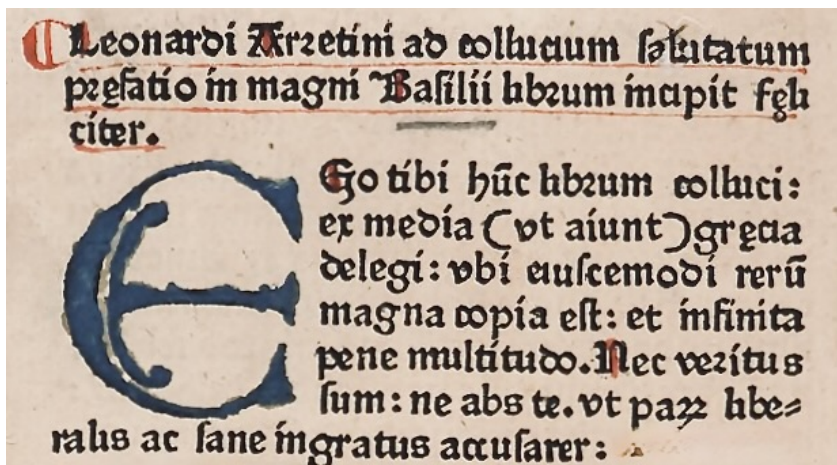 Leonardi Arretini ad collucium salutatum
pręfatio in magni Basilii librum incipit fęli
citer.
EGo tibi hūc librum colluci:
ex media (vt aiunt) gręcia
delegi: vbi eiuscemodi rerū
magna copia est: et infinita
pene multitudo. Nec veritus
sum: ne abs te. vt paꝝ libe=
ralis ac sane ingratus accusarer: